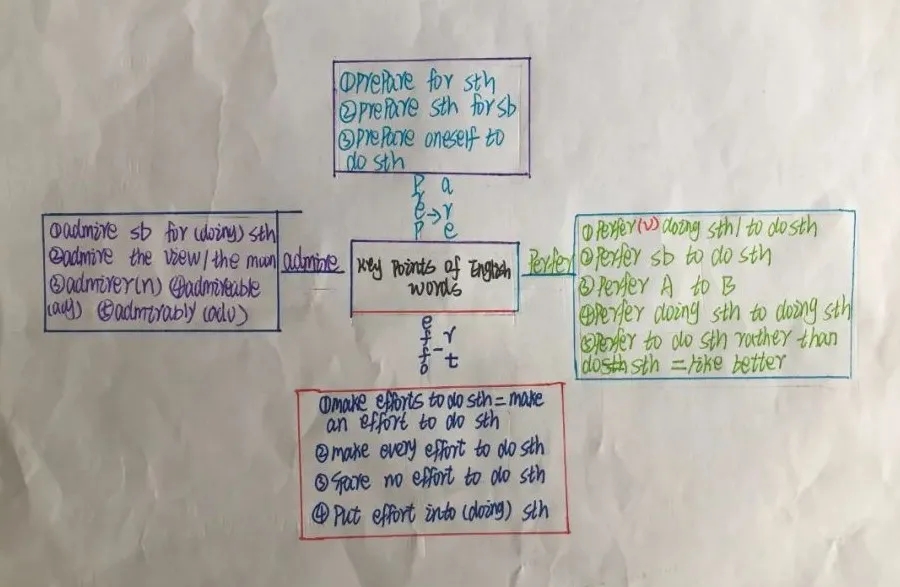 ①prepare for sth
②prepare sth for sb
③prepare oneself to
do sth
prep→are
①admire sb for (doing) sth
②admire the view/the moon
③admirer(n) ④admireable
(adj) ⑤admirably (adv)
admire
Key Points of English
words
Perfer
①Perfer(v) doing sth/ to do sth
②Perfer sb to do sth
③Perfer A to B
④Perfer doing sth to doing sth
⑤Perfer to do sth rather than
do sth =like better
effo-rt
①make efforts to do sth = make
an effort to do sth
②make every effort to do sth
③Spare no effort to do sth
④Put effort into (doing) sth